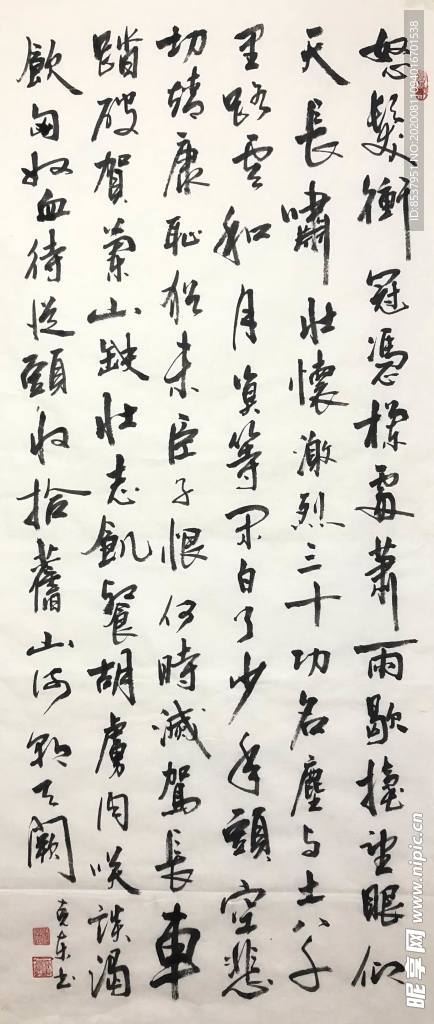 怒髮衝冠憑欄處蕭雨歇擡望眼仰
天長嘯壯懷激烈三十功名塵与土八千
里路雲和月莫等閑白了少年頭空悲
切靖康恥猶未臣子恨何時滅駕長車
踏破賀蘭山缺壯志飢餐胡虜肉笑談渴
飲匈奴血待從頭收拾舊山河朝天闕
克东书
ID:8537951 NO:20200811094016701538
昵享网 www.nipic.cn